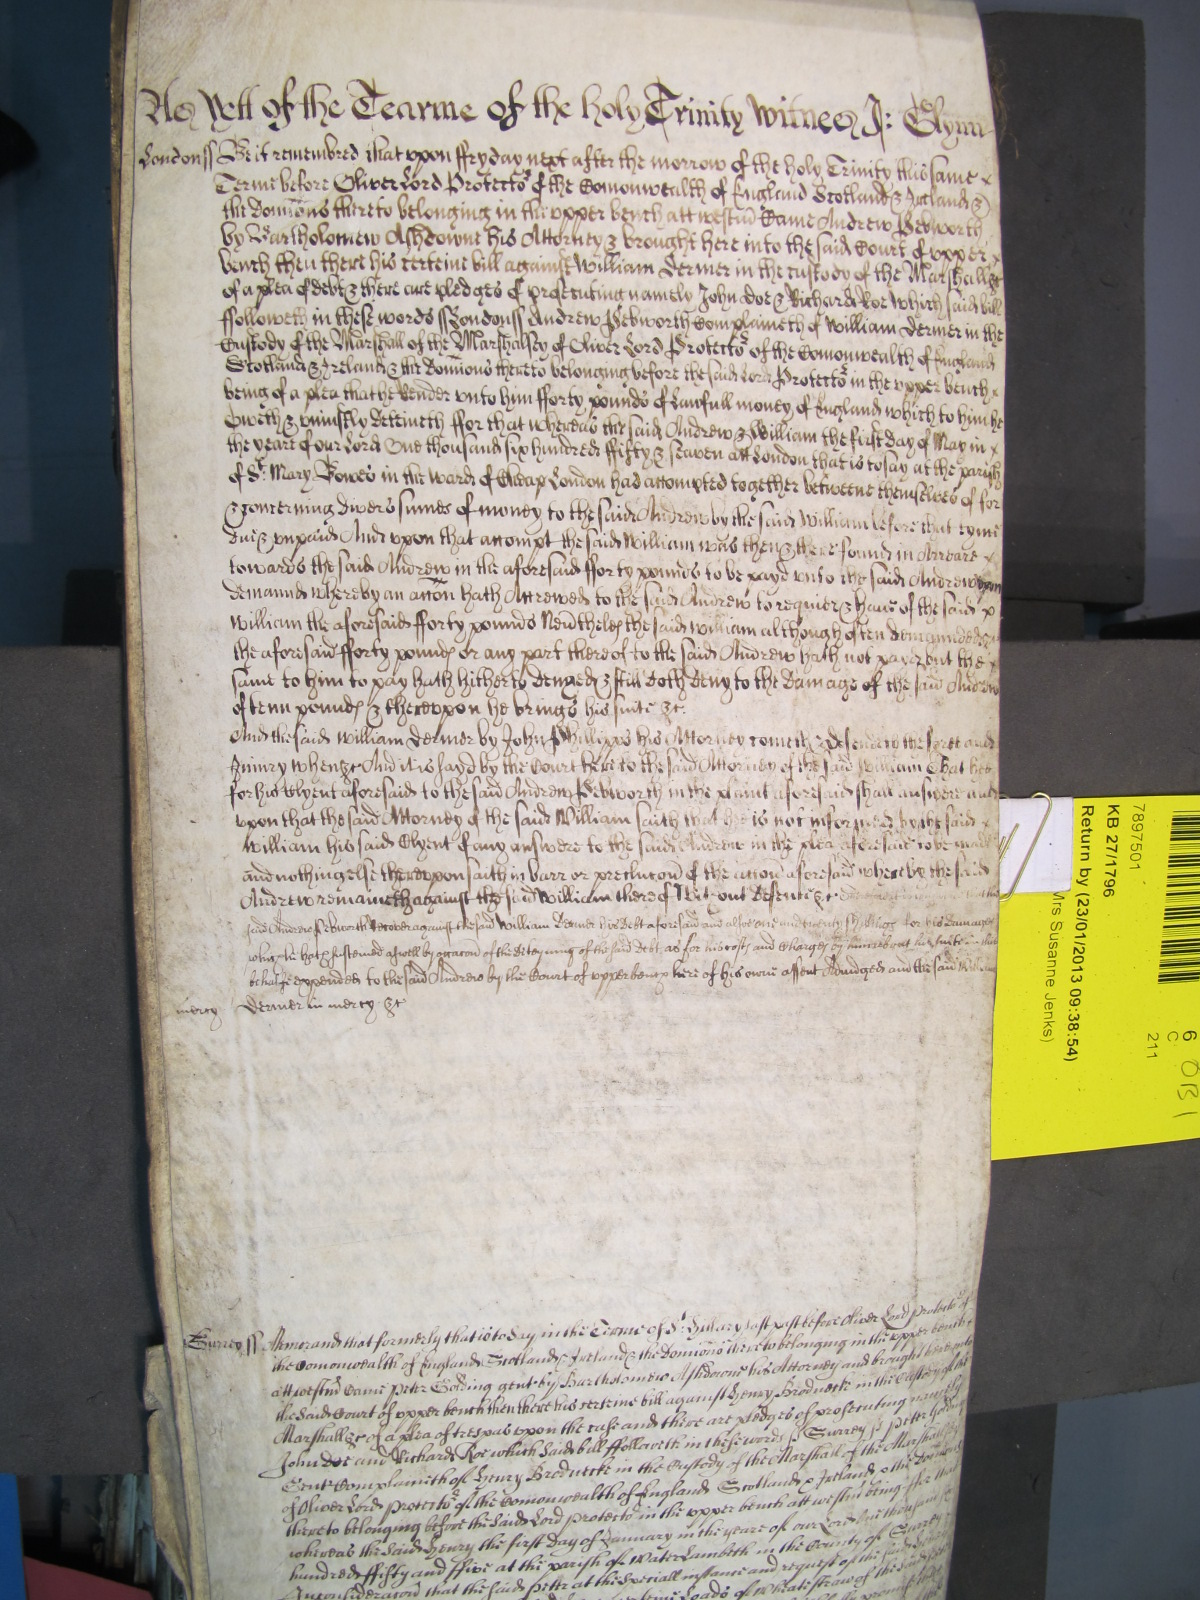 As Yett of the Tearme of the holy Trinity Witnes J: Glynn
London ss Be it remembred that upon ffryday next after the morrow of the holy Trinity this same
Terme before Oliver Lord Protector of the Comonwealth of England Scotland & Ireland &
the Dominions thereto belonging in the upper bench att westm Came Andrew Pebworth
by Bartholomew Ashdowne his Attorney & brought here into the said Court of upper
bench then there his certeine bill against William Dermer in the custody of the Marshall &c
of a plea of debt & there are pledges of prosecuting namely John doe & Richard Roe which said bill
ffolloweth in these words ss London ss Andrew Pebworth Complaineth of William Dermer in the
Custody of the Marshall of the Marshalsey of Oliver Lord Protector of the Comonwealth of England
Scotland & Ireland & the Dominions thereto belonging before the said Lord Protector in the upper bench
being of a plea that he Render unto him fforty pounds of Lawfull money of England which to him he
Oweth & uniustly deteineth ffor that whereas the said Andrew & William the first day of May in
the yeare of our Lord One thousand six hundred ffifty & seaven att London that is to say at the parish
of St. Mary Bowes in the ward of Cheap London had accompted together betweene themselves of for
& concerning divers sumes of money to the said Andrew by the said William before that tyme
due & unpaid And upon that accompt the said William was then & there found in Arreare
towards the said Andrew in the aforesaid fforty pounds to be payd unto the said Andrew upon
demaund whereby an accon hath Accrewed to the said Andrew to require & have of the said
William the aforesaid fforty pounds Nevertheles the said William although often demaunded &c
the aforesaid fforty pounds or any part thereof to the said Andrew hath not payd but the
same to him to pay hath hitherto denyed & still doth deny to the damage of the said Andrew
of tenn pounds & thereupon he brings his suite &c.
And the said William Dermer by John Phillipps his Attorney cometh & defendeth the force and
iniury when &c And it is sayd by the Court here to the said Attorney of the said William That hee
for his Clyent aforesaid to the said Andrew Pebworth in the plaint aforesaid shall answere and
upon that the said Attorney of the said William saith that hee is not informed by the said
William his said Clyent of any answere to the said Andrew in the plea aforesaid to be made
and nothing else thereupon saith in barr or preclusion of the accion aforesaid whereby the said
Andrew remaineth against the said William thereof without defence &c
said Andrew Pebworth Recover against the said William Dermer his Debt aforesaid and alsoe one and twenty shillings for his damages
which he hath susteined aswell by occacon of the deteyning of the said Debt as for his costs and Charges by him about his suite in that
behalfe expended to the said Andrew by the Court of upper bench here of his owne assent Adiudged and the said William
mercy Dermer in mercy &c
Surrey ss Memorand that formerly that is to day in the Terme of St. Hillary last past before Oliver Lord Protector of
the Comonwealth of England Scotland & Ireland & the Dominions thereto belonging in the upper bench
att westm Came Peter Golding gent by Bartholomew Ashdowne his Attorney and brought here into
the said Court of upper bench then there his certeine bill against Henry Brodnecke in the Custody of the
Marshall &c of a plea of trespas upon the case and there are pledges of prosecuting namely
John Doe and Richard Roe which said bill ffolloweth in these words ss Surrey ss Peter Golding
Gent Complaineth of Henry Brodnecke in the Custody of the Marshall of the Marshalsey
of Oliver Lord Protector of the Comonwealth of England Scotland & Ireland & the Dominions
thereto belonging before the said Lord Protector in the upper bench att westm being ffor that
whereas the said Henry the first day of January in the yeare of our Lord One thousand six
hundred ffifty and ffive at the parish of Water Lambeth in the County of Surrey
In consideracon that the said Peter at the speciall instance and request of the said Henry
Loads of Wheate straw of the said
7897501
KB 27/1796
Return by (23/01/2013 09:38:54)
Mrs Susanne Jenks)
6
C
211
OB 1